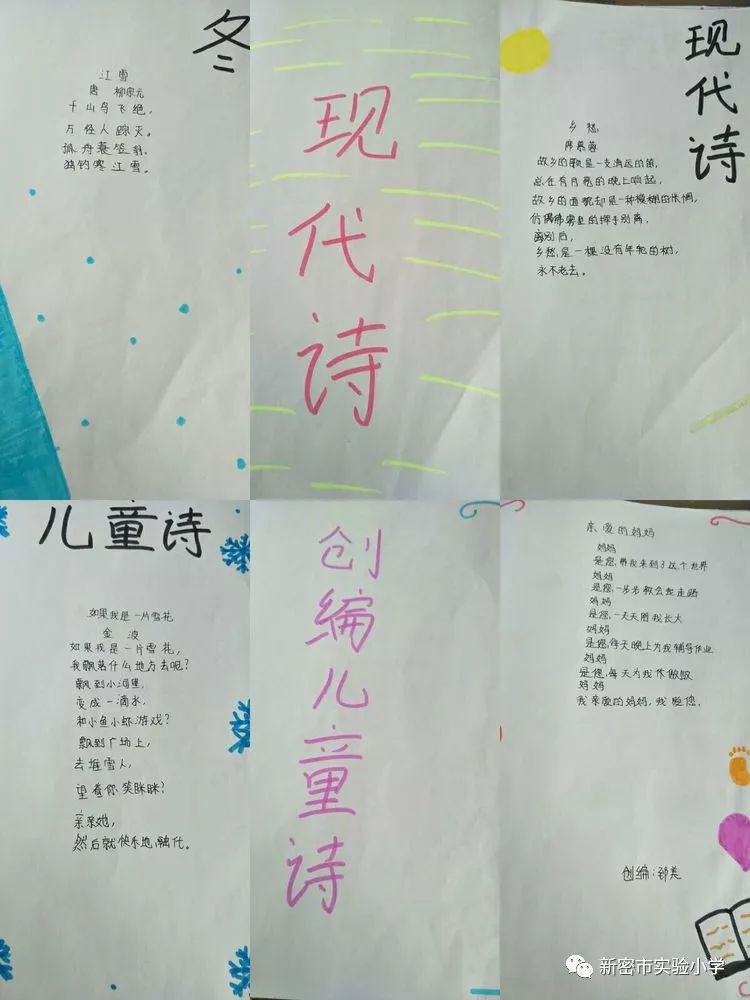 冬
江雪
唐 柳宗元
千山鸟飞绝，
万径人踪灭。
孤舟蓑笠翁，
独钓寒江雪。
现代诗
现代诗
乡愁
席慕蓉
故乡的歌是一支清远的笛，
总在有月亮的晚上响起，
故乡的面貌却是一种模糊的怅惘，
仿佛雾里的挥手别离，
离别后，
乡愁是一棵没有年轮的树，
永不老去。
儿童诗
如果我是一片雪花
金波
如果我是一片雪花，
我飘落什么地方去呢？
飘到小河里，
变成一滴水，
和小鱼小虾游戏？
飘到广场上，
去堆雪人，
望着你笑眯眯？
亲亲她，
然后就快乐地融化。
创编儿童诗
亲爱的妈妈
妈妈
是您，带我来到了这个世界
妈妈
是您，一步步教会我走路
妈妈
是您，一天天陪我长大
妈妈
是您，每天晚上为我辅导作业
妈妈
是您，每天为我做饭
妈妈
我亲爱的妈妈，我爱您。
创编：郭美
新密市实验小学